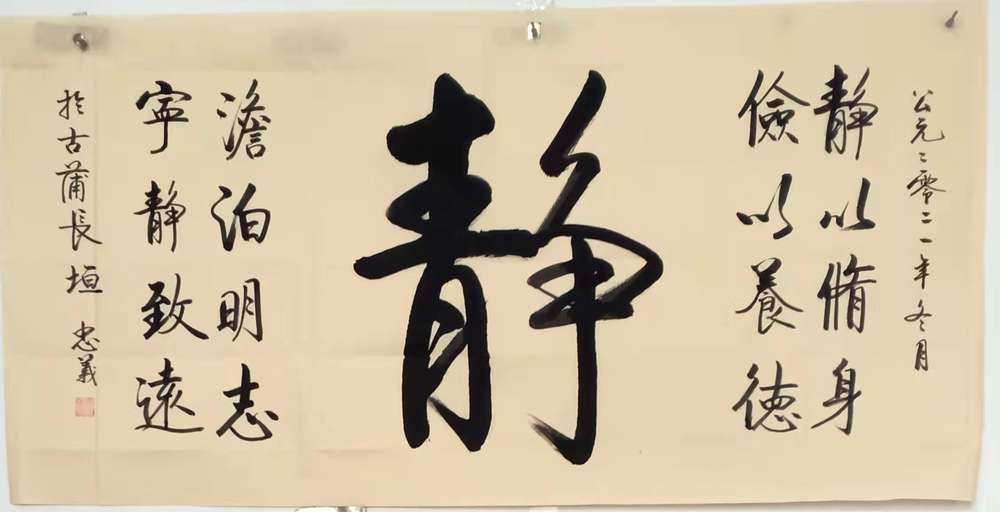 公元二零二一年冬月
静以脩身
儉以養德
静
澹泊明志
寜静致遠
於古蒲長垣 忠義